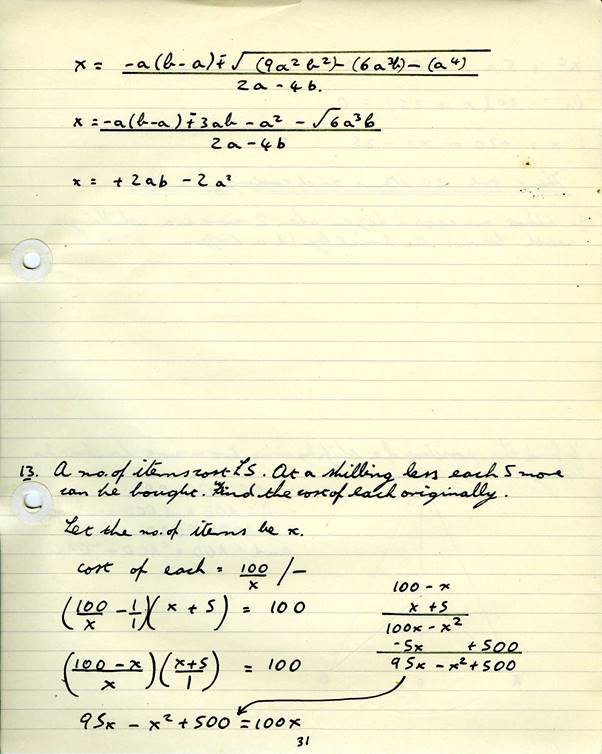 x = -a(b-a)∓√(9a²b²)-(6a³b)-(a⁴)
2a-4b.
x = -a(b-a)∓3ab-a²-√6a³b
2a-4b
x = +2ab-2a²
13. A no. of items cost £5. At a shilling less each 5 more
can be bought. Find the cost of each originally.
Let the no. of items be x.
cost of each = 100/x /-
(100/x - 1/1)(x+5) = 100
100-x
x+5
100x-x²
-5x +500
95x-x²+500
((100-x)/x)((x+5)/1) = 100
95x-x²+500=100x
31